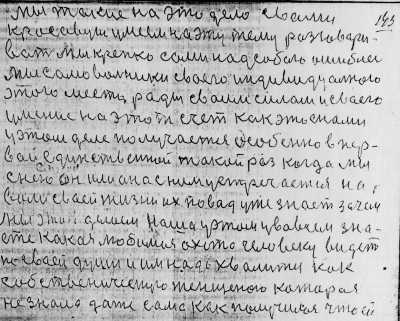 мы такие на это дело с вами
красавцы умеем на эту тему разговари-
ват мы крепко сами над собою ошиблис
мы самовольники своего индивидуалного
этого места рады своим силам и своего
умение на этот счет как это сами
у этом деле получается особенно в пер-
вай единственный такой раз когда мы
с нею он или она с ним устречается на
вами своей жизни их повад уже знает зачем
мы этой делаем наша у этом увовчем зна-
ете какая любимая охото человеку видет
по своей души и им надо хвалити как
собственическую женщеного катарая
не знала даже сама как получился что ей
143